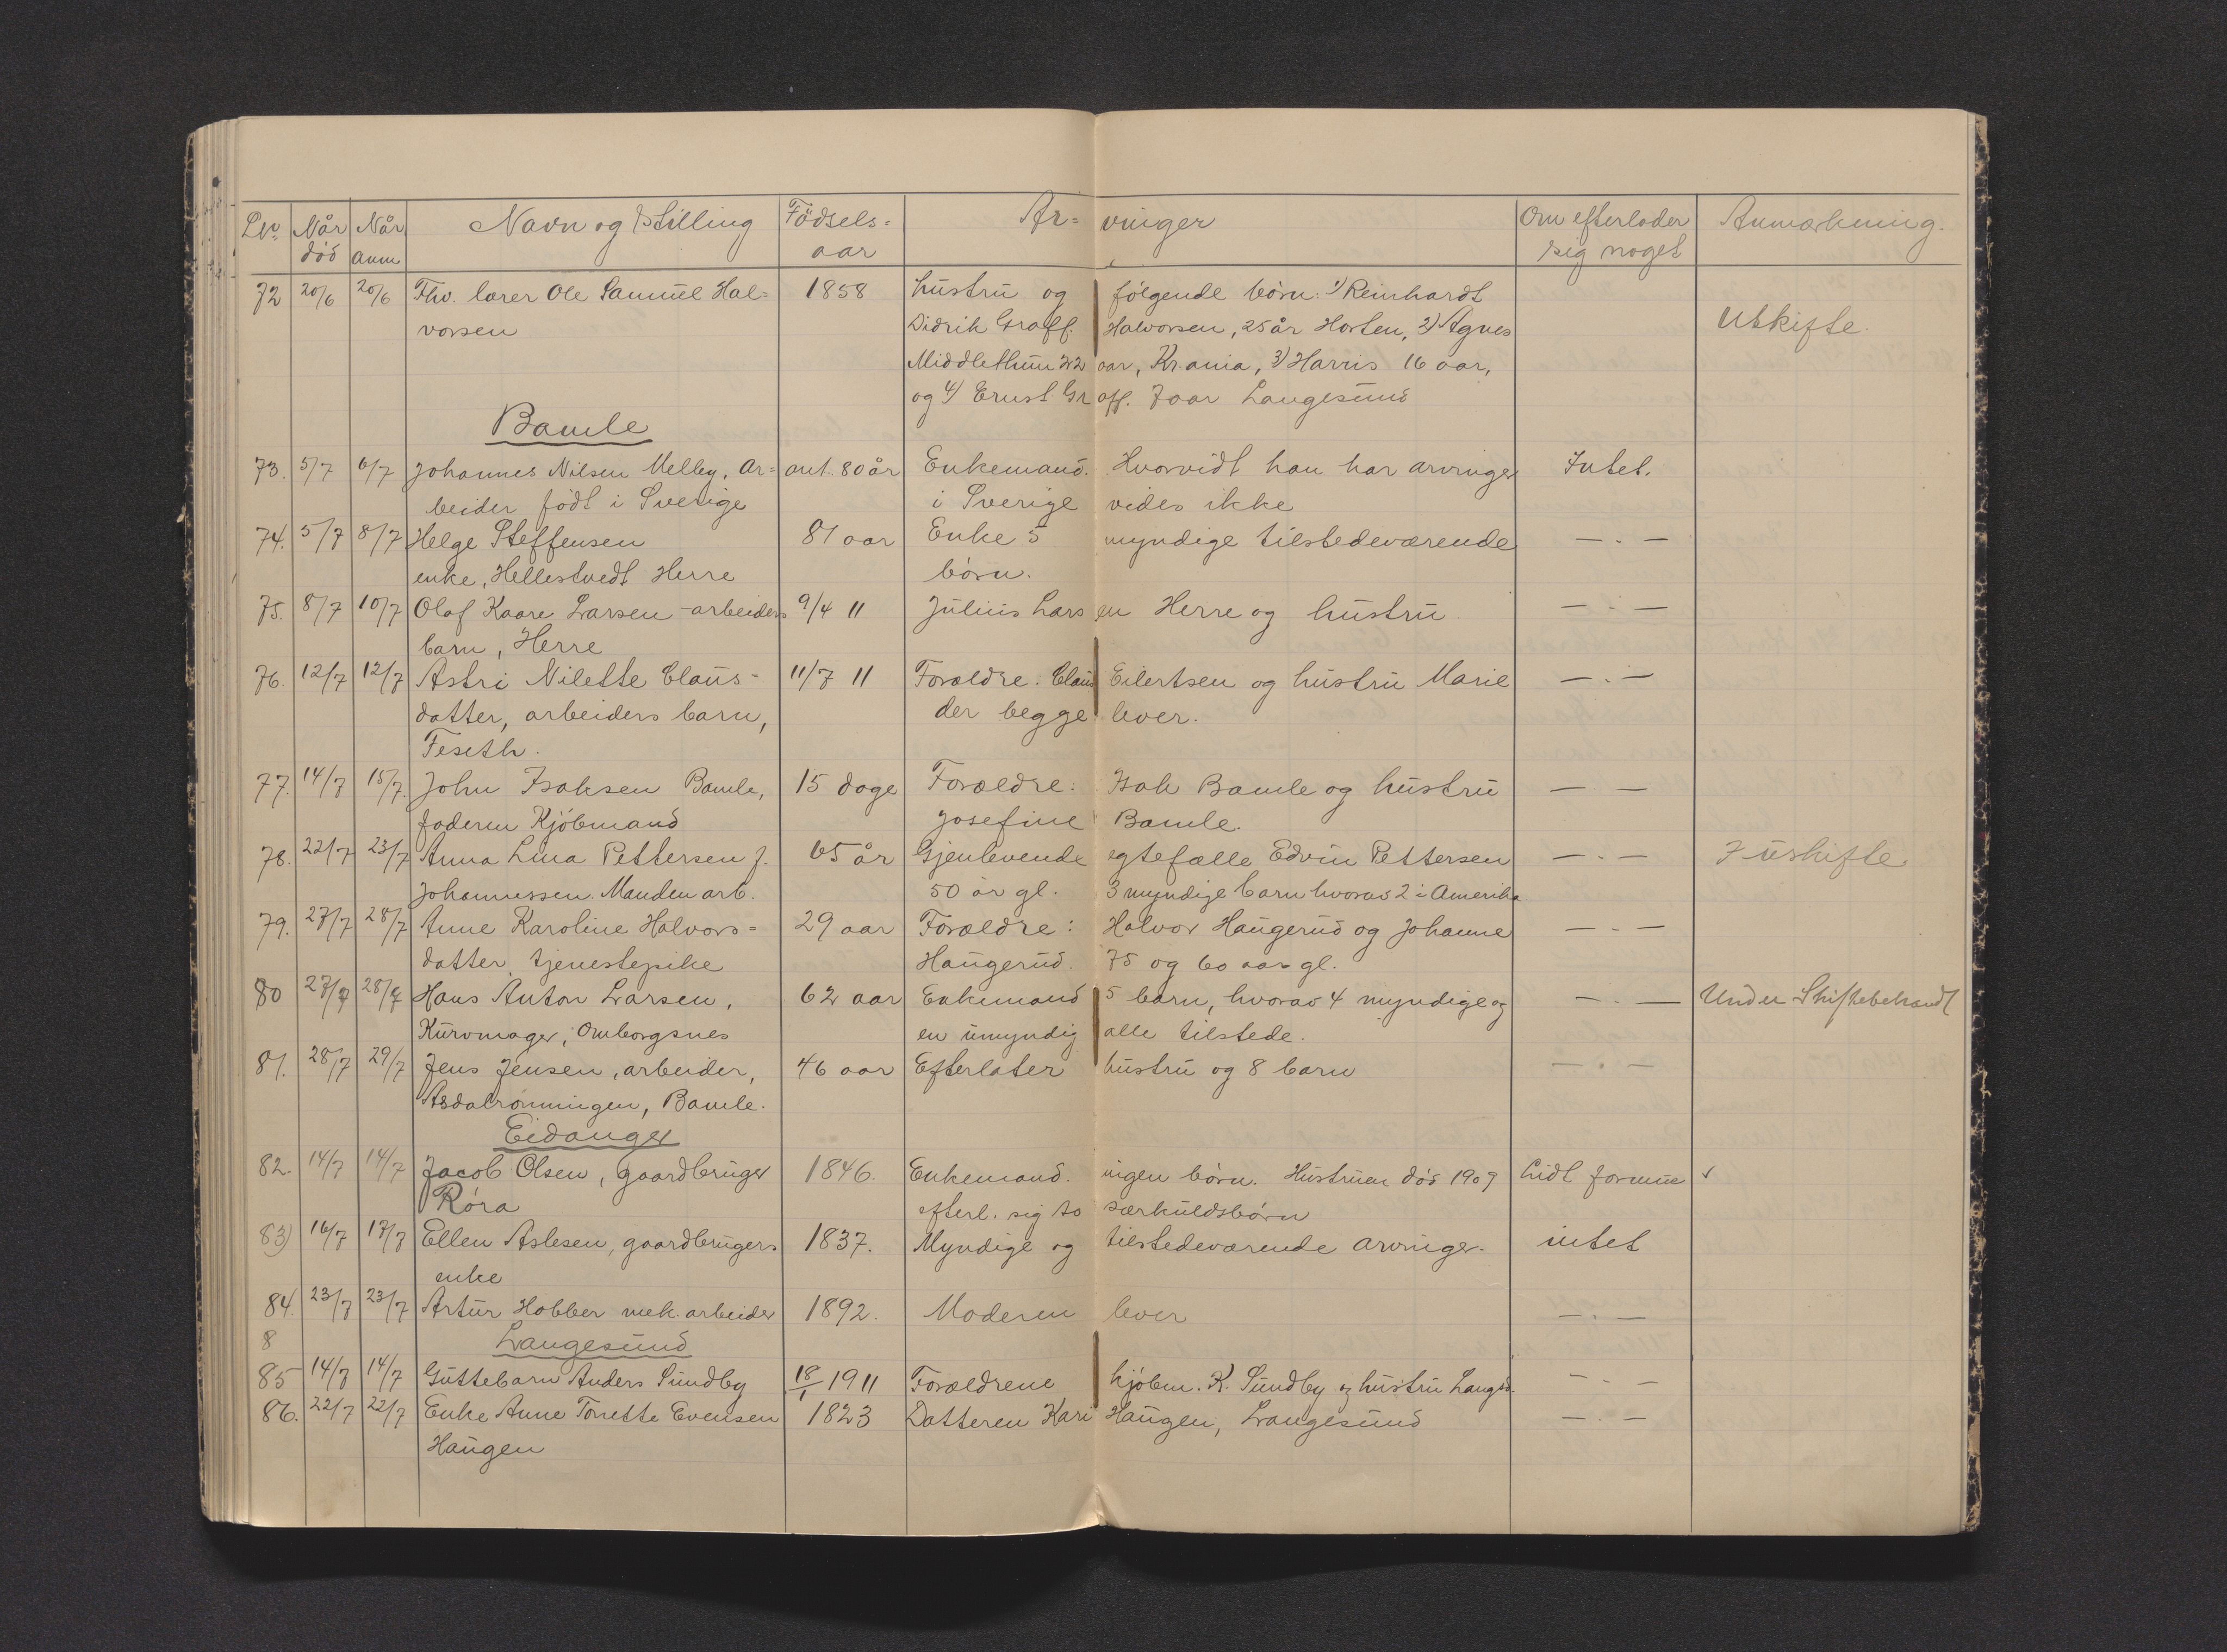 No. Når Når Navn og Stilling Födsels= Ar= vinger Om efterlader Anmærkning.
död anm aar sig noget
72 20/6 20/6 Fhv. lærer Ole Samuel Hal= 1858 hustru og følgende börn: 1) Reinhardt
vorsen Didrik Graff. Halvorsen, 25 år Horten, 2) Agnes Utskifte.
Middlethun 22 aar, Kr.ania, 3) Harris 16 aar,
og 4) Ernst Graff. 7 aar Langesund
Bamle
73. 5/7 6/7 Johannes Nilsen Melby, ar= ant. 80 år Enkemand. Hvorvidt han har arvinger Intet.
beider födt i Sverige i Sverige vides ikke
74. 5/7 8/7 Helge Steffensen 81 aar Enke 5 myndige tilstedeværende — . —
enke, Hellestvedt Herre börn.
75. 8/7 10/7 Olaf Kaare Larsen - arbeiders 9/4 11 Julius Larsen Herre og hustru. — . —
barn, Herre
76. 12/7 12/7 Astri Nilette Claus- 11/7 11 Forældre. Claus Eilertsen og hustru Marie — . —
datter, arbeiders barn, der begge lever.
Feseth.
77. 14/7 15/7. John Isaksen Bamle, 15 dage Forældre: Isak Bamle og hustru — —
faderen Kjöbmand Josefine Bamle.
78. 22/7 23/7 Anna Lina Pettersen f. 65 år Gjenlevende egtefælle Edvin Pettersen — . — I uskifte
Johannessen. Manden arb. 50 år gl. 3 myndige barn hvorav 2 i Amerika
79. 27/7 28/7 Anne Karoline Halvors= 29 aar Forældre: Halvor Haugerud og Johanne — . —
datter, tjenestepike Haugerud. 75 og 60 aar gl.
80 27/7 28/7 Hans Anton Larsen, 62 aar Enkemand 5 barn, hvorav 4 myndige og — . — Under Skiftebehandl
Kurvmager, Omborgsnes en umyndig alle tilstede.
81. 28/7 29/7 Jens Jensen, arbeider, 46 aar Efterlater hustru og 8 barn — . —
Asdalrønningen, Bamle.
Eidanger
82. 14/7 14/7 Jacob Olsen, gaardbruger 1846. Enkemand. ingen börn. Hustruen död 1909 Lidt formue
Röra efterl. sig to særkuldsbörn
83) 16/7 17/7 Ellen Aslesen, gaardbrugers 1837. Myndige og tilstedeværende arvinger. intet
enke
84. 23/7 23/7 Artur Hobber mek. arbeider 1892. Moderen lever — . —
8 Langesund
85 14/7 14/7 Guttebarn Anders Sundby 18/1 1911 Forældrene kjöbm. K. Sundby og hustru Langsd. — . —
86. 22/7 22/7 Enke Anne Torette Evensen 1823 Datteren Kari Haugen, Langesund — . —
Haugen